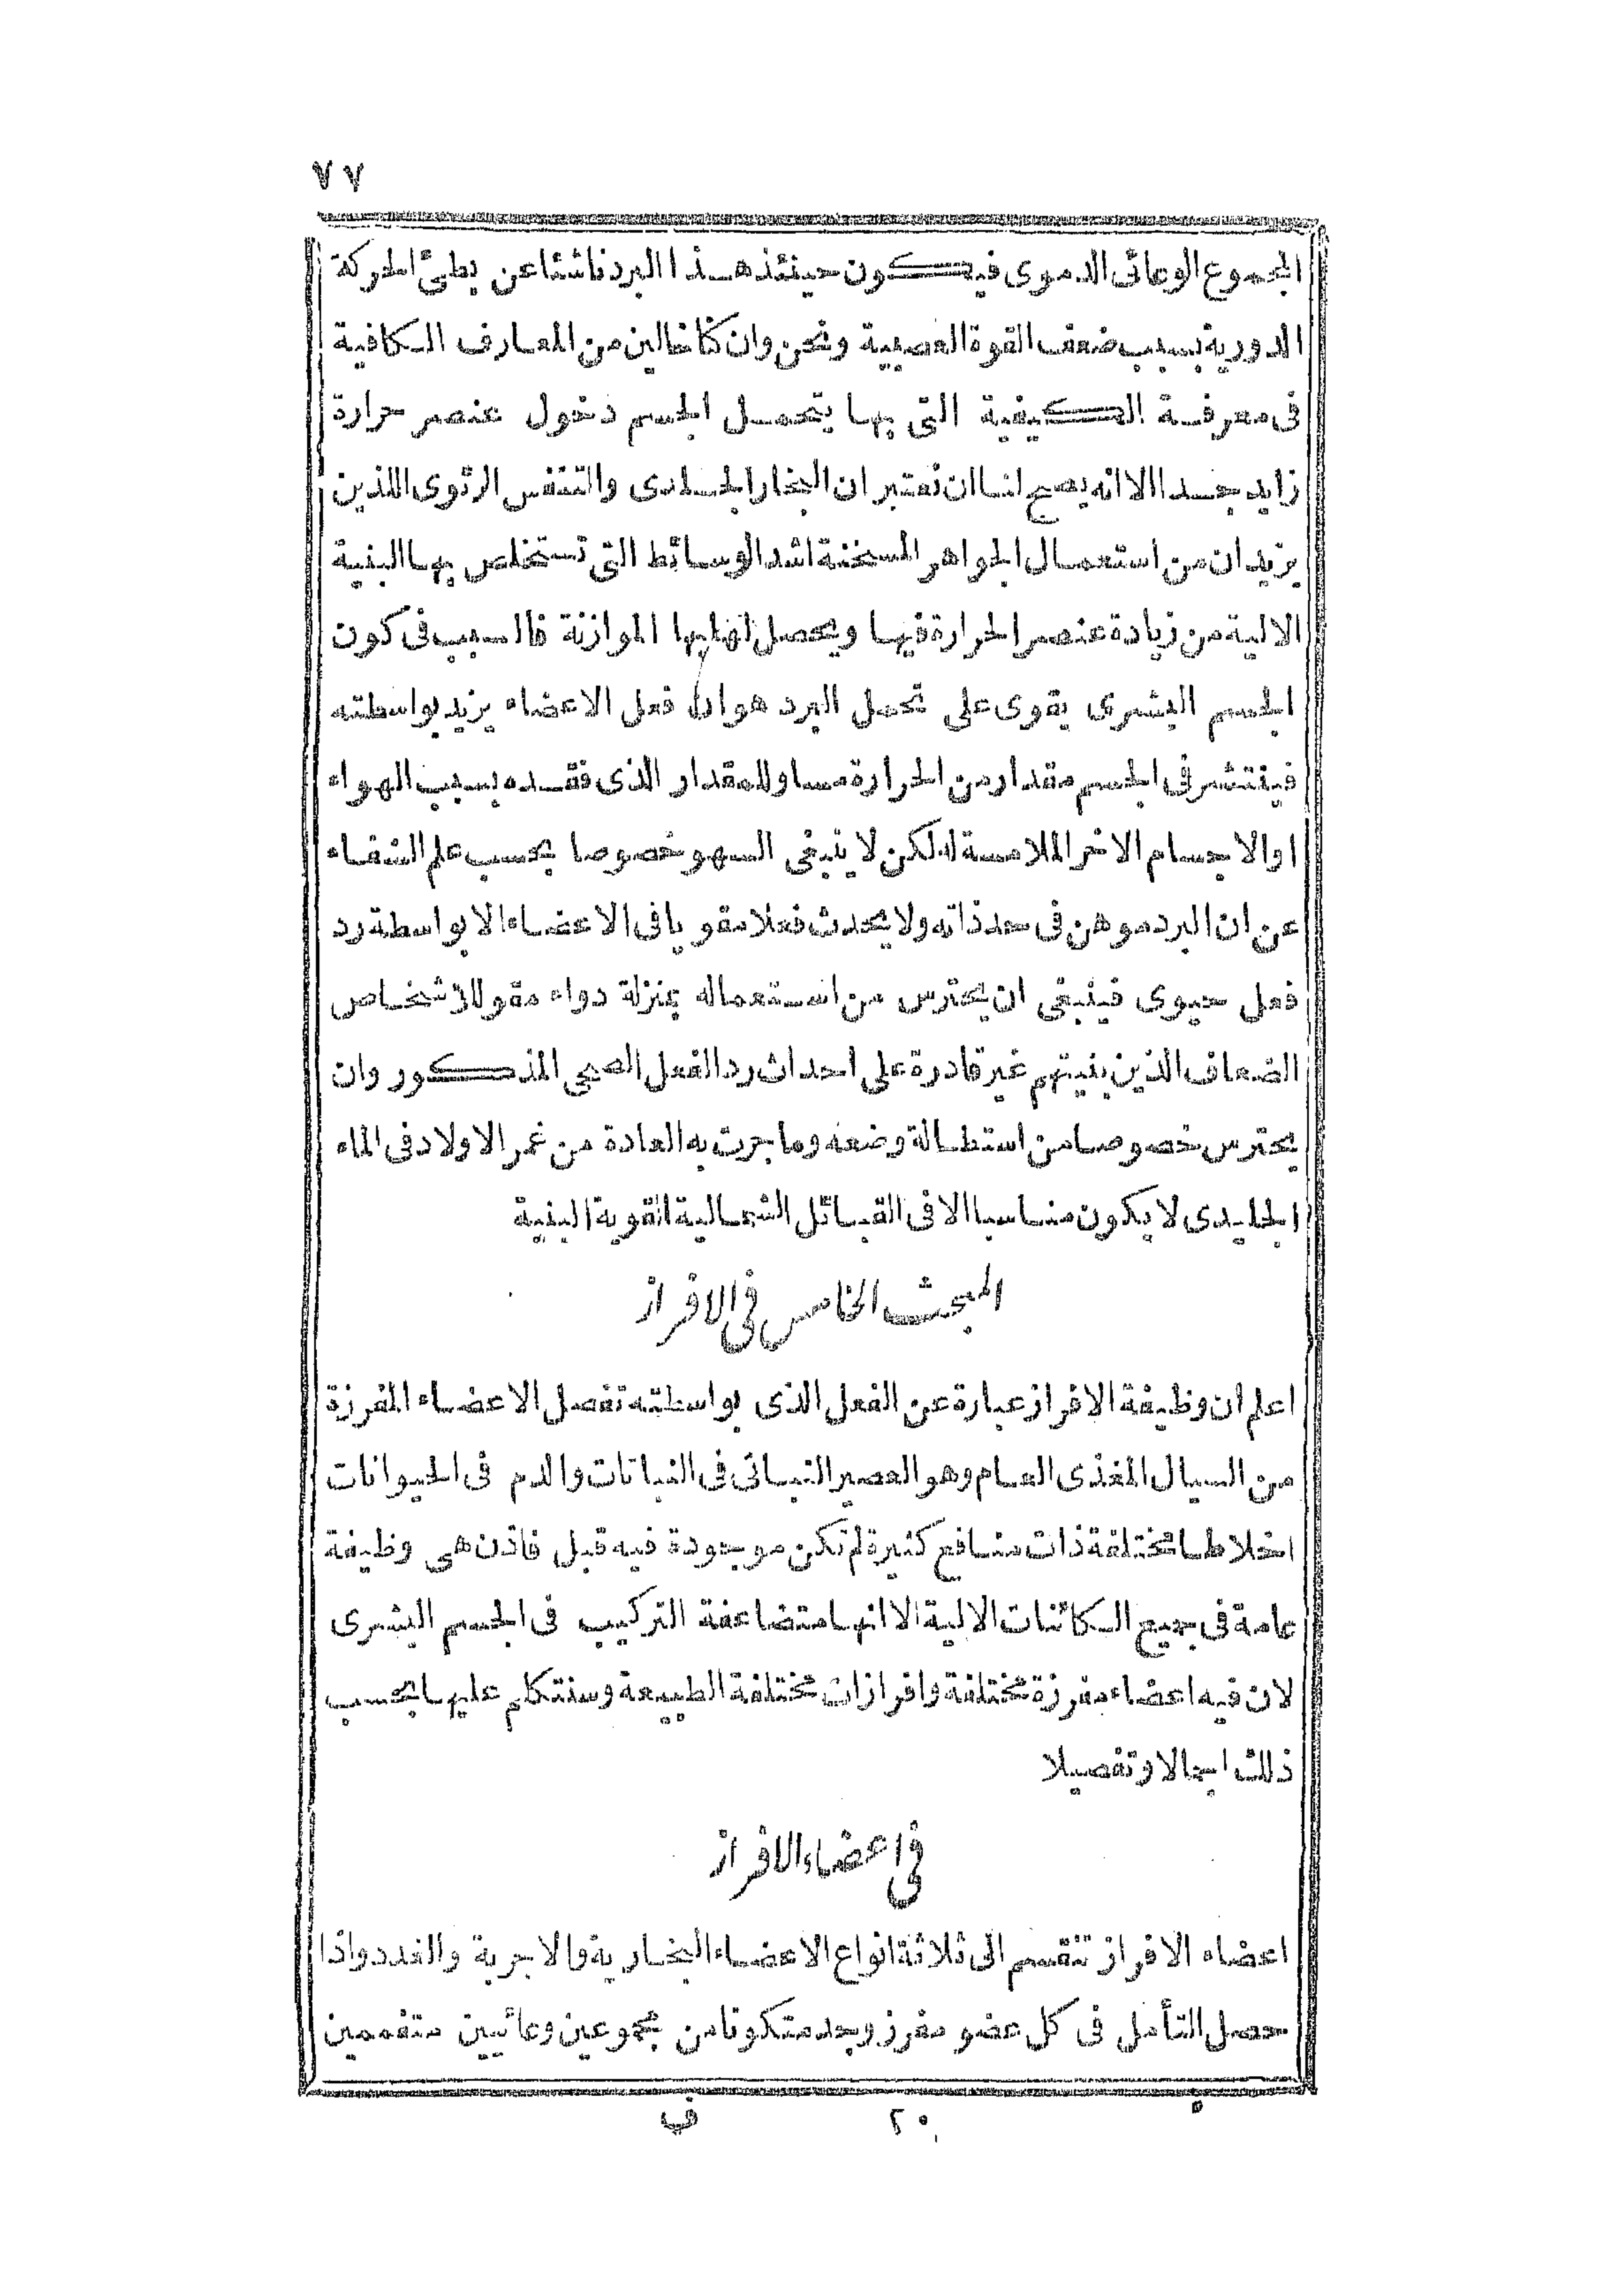 ٧٧
المجموع الوعائى الدموى فيكون حينئذ هذا البرد ناشئا عن بطئ الحركة
الدورية بسبب ضعف القوة العصبية ونحن وان كنا خالين من المعارف الكافية
فى معرفة الكيفية التى بها يتحمل الجسم دخول عنصر حرارة
زايد جدا الا انه يصح لنا ان نعتبر ان البخار الجلدى والتنفس الرئوى اللذين
يزيدان من استعمال الجواهر المسخنة اشد الوسائط التى تستخلص بها البنية
الالية من زيادة عنصر الحرارة فيها ويحصل لها بها الموازنة فالسبب فى كون
الجسم البشرى يقوى على تحمل البرد هو ان فعل الاعضاء يزيد بواسطته
فينتشر فى الجسم مقدار من الحرارة مساو للمقدار الذى فقده بسبب الهواء
او الاجسام الاخر الملامسة له لكن لا ينبغى السهو خصوصا بحسب علم الشفاء
عن ان البرد موهن فى حد ذاته ولا يحدث فعلا مقويا فى الاعضاء الا بواسطة رد
فعل حيوى فينبغى ان يحترس من استعماله بمنزلة دواء مقو لاشخاص
الضعاف الذين بنيتهم غير قادرة على احداث رد الفعل الصحى المذكور وان
يحترس خصوصا من استطالة وضعه وما جرت به العادة من غمر الاولاد فى الماء
الجليدى لا يكون مناسبا الا فى القبائل الشمالية القوية البنية
المبحث الخامس فى الافراز
اعلم ان وظيفة الافراز عبارة عن الفعل الذى بواسطته تفصل الاعضاء المفرزة
من السيال المغذى العام وهو العصير النباتى فى النباتات والدم فى الحيوانات
اخلاطا مختلفة ذات منافع كثيرة لم تكن موجودة فيه قبل فاذن هى وظيفة
عامة فى جميع الكائنات الالية الا انها متضاعفة التركيب فى الجسم البشرى
لان فيه اعضاء مفرزة مختلفة وافرازات مختلفة الطبيعة وسنتكلم عليها بحسب
ذلك اجمالا وتفصيلا
فى اعضاء الافراز
اعضاء الافراز تنقسم الى ثلاثة انواع الاعضاء البخارية والاجربة والغدد واذا
حصل التأمل فى كل عضو مفرز وجد متكونا من مجموعين وعائيين متفممين
٢٠ ف